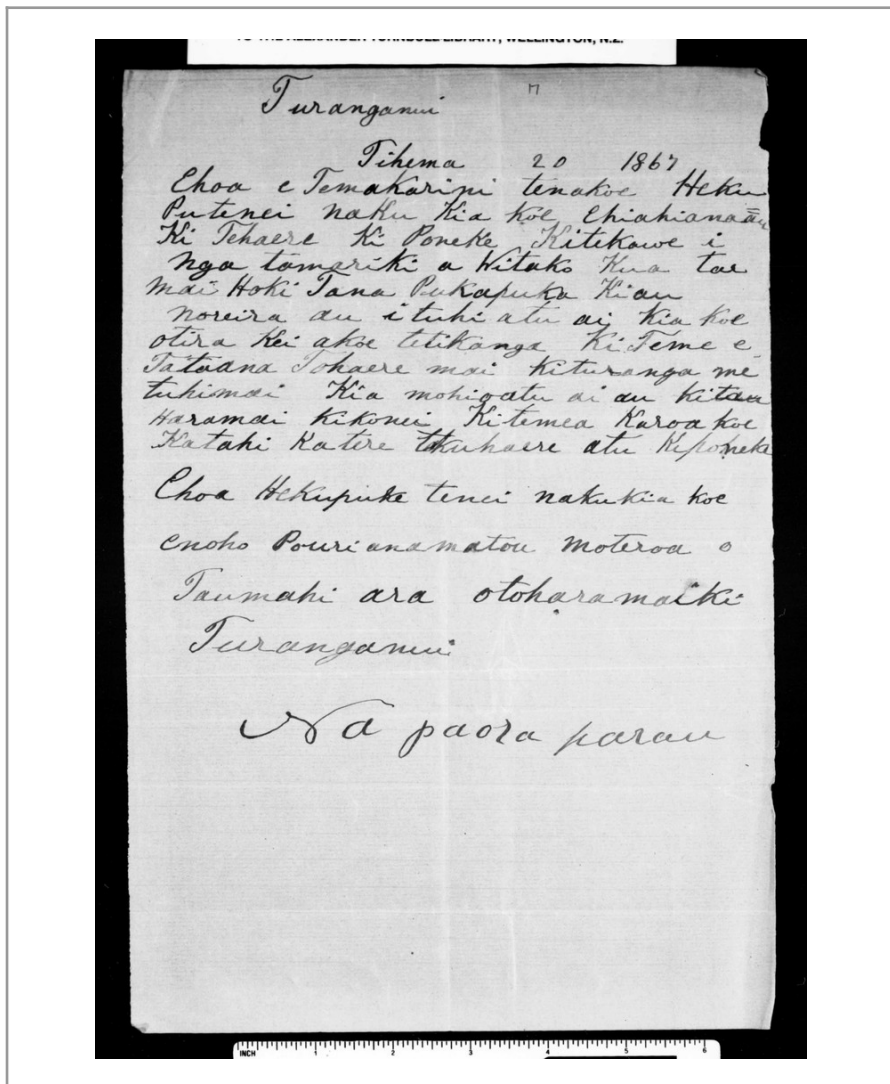 TO THE ALEXANDER TURNBULL LIBRARY, WELLINGTON, N.Z.
Turanganui
Tihema 20 1867
Ehoa e Temakarini tenakoe Heku
Putenei naku Kia koe Ehiahianaau
Ki Tehaere Ki Poneke Kitekawe i
nga tamariki a Witako Kua tae
mai Hoki Tana Pukapuka Kiau
noreira au i tuhi atu ai Kia koe
otira Kei akoe tetikanga Ki Teme e
Tataana Tohaere mai kituranga me
tuhimai Kia mohioatu ai au kitau
Haramai kikonei Kitemea Karoa koe
Katahi Ka tere takuhaere atu Kiponeke
Ehoa Hekupuke tenei nakukia koe
enoho Pourianamatou moteroa o
Taumahi ara otoharamaiki
Turanganui
Na paora parau
INCH 1 2 3 4 5 6